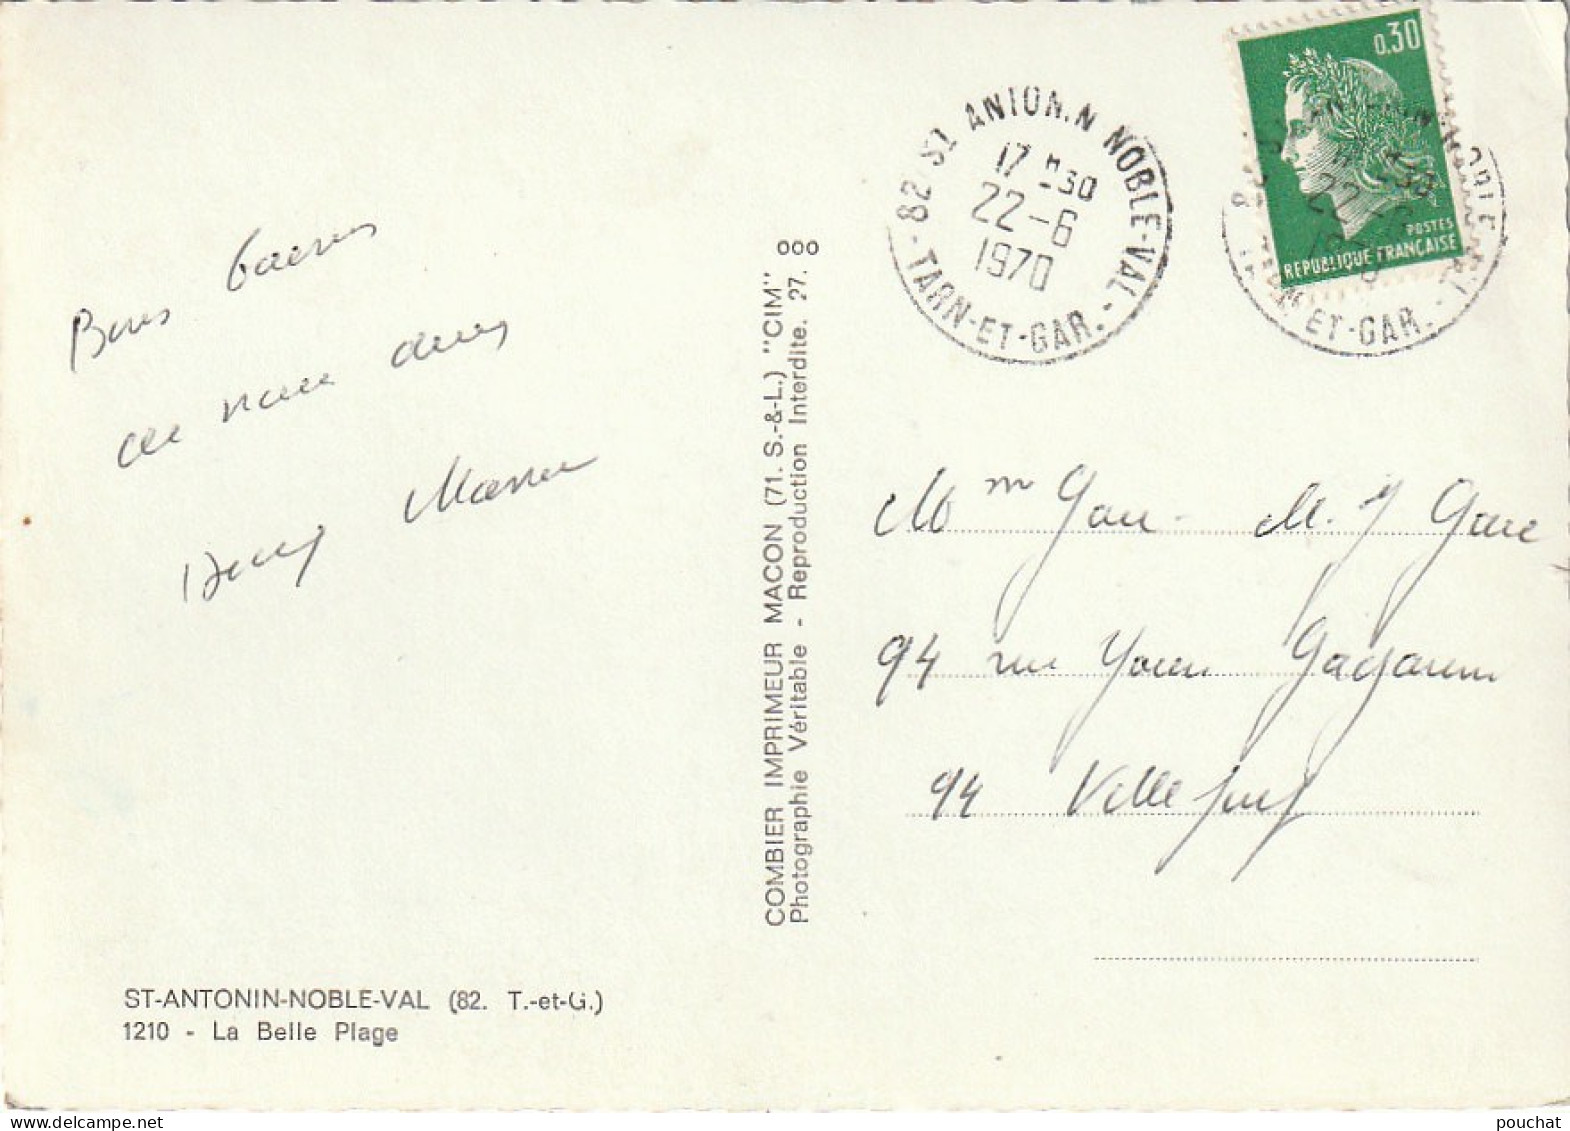 Bons baisers
de nous deux
ST-ANTONIN-NOBLE-VAL (82. T.-et-G.)
1210 - La Belle Plage
COMBIER IMPRIMEUR MACON (71. S.-&-L.) "CIM"
Photographie Véritable - Reproduction Interdite. 27. 000
82 ST ANTONIN NOBLE-VAL
17H30
22-6
1970
- TARN-ET-GAR. -
0.30
POSTES
REPUBLIQUE FRANÇAISE
22-6
ET-GAR. -
94 rue Youri Gagarine
94 Villejuif
pouchat